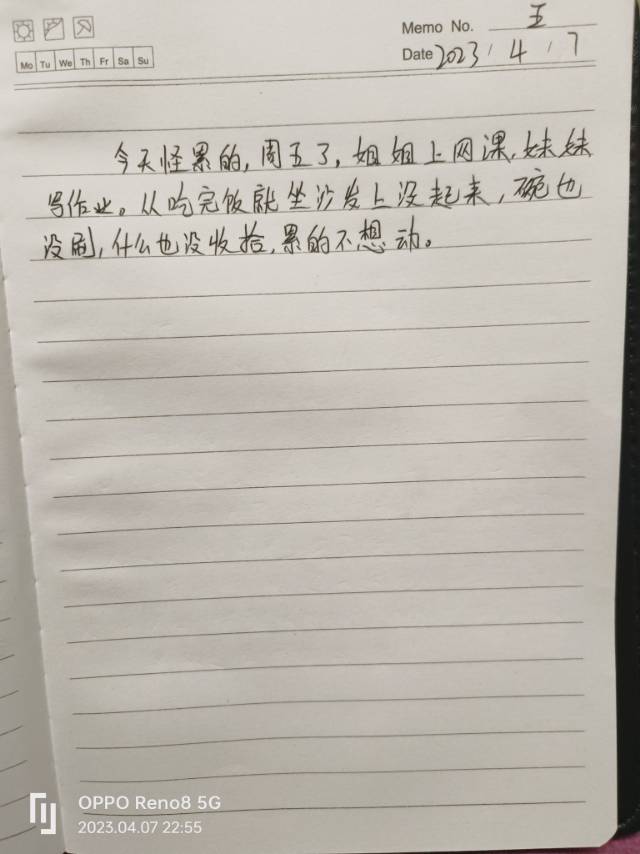 Memo No. 五
Mo Tu We Th Fr Sa Su
Date 2023 / 4 / 7
今天怪累的,周五了,姐姐上网课,妹妹
写作业。从吃完饭就坐沙发上没起来,碗也
没刷,什么也没收拾,累的不想动。
OPPO Reno8 5G
2023.04.07 22:55